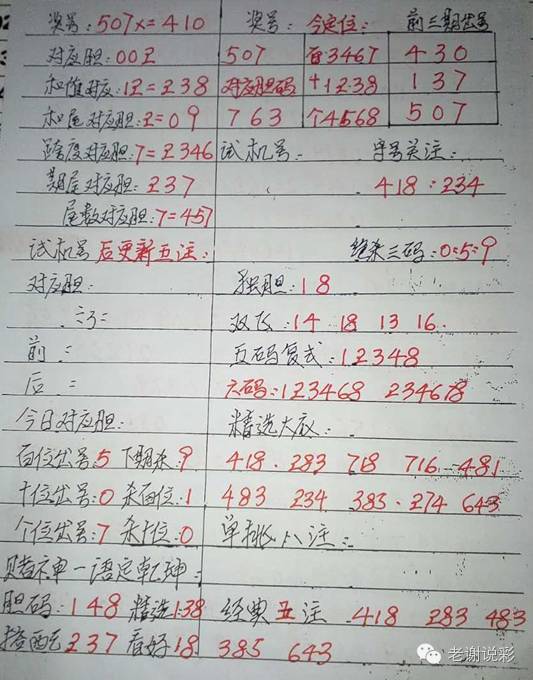 奖号:507x=410 奖号: 今定位: 前三期出号
对应胆:00Z 507 百:3467 430
和值对应:1Z=Z38 对应胆码 十1238 137
和尾对应胆:Z=09 763 个4568 507
跨度对应胆:7=Z346 试机号: 守号关注:
期尾对应胆:Z37 418:234
尾数对应胆:7=457
试机号后更新五注: 绝杀三码:0:5:9
对应胆: 独胆:18
双飞:14 18 13 16.
前: 五码复式:12348
后: 六码:123468 234678
今日对应胆: 精选大底:
百位出号:5 下期杀:9 418. 283 718 716 481
十位出号:0 杀百位:1 483 234 383. 274 643
个位出号:7 杀十位:0 单挑八注:
赌神一语定乾坤:
胆码:148 精选138 经典五注 418 283 483
搭配237 看好18 385 643
老谢说彩